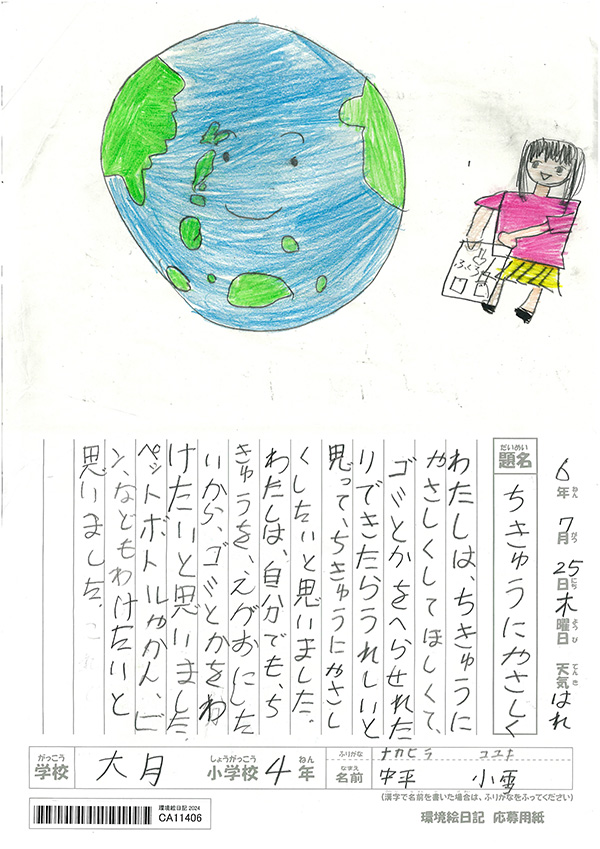 ふくろ
6年 7月 25日 木曜日 天気 はれ
ねん がつ にち ようび てんき
だいめい
題名 ちきゅうにやさしく
わたしは、ちきゅうに
やさしくしてほしくて、
ゴミとかをへらせれた
りできたらうれしいと
思って、ちきゅうにやさし
くしたいと思いました。
わたしは、自分でも、ち
きゅうを、えがおにした
いから、ゴミとかをわ
けたいと思いました。
ペットボトルやかん、ビ
ン、などもわけたいと
思いました。
がっこう しょうがっこう ねん
学校 大月 小学校 4年
ふりがな ナカヒラ コユキ
なまえ
名前 中平 小雪
(漢字で名前を書いた場合は、ふりがなをふってください)
環境絵日記 2024
CA11406
環境絵日記 応募用紙